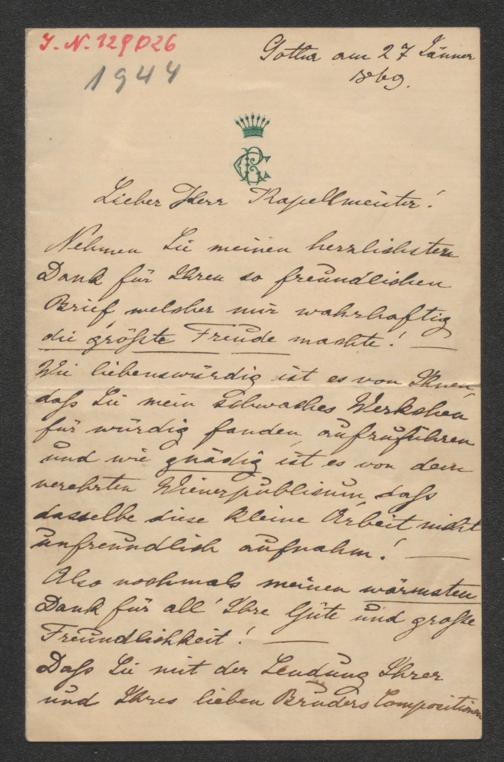 I. N. 129026
1944
Gotha am 27 Jänner
1869.
RC
Lieber Herr Kapellmeister!
Nehmen Sie meinen herzlichsten
Dank für Ihren so freundlichen
Brief welcher mir wahrhaftig
die größte Freude machte! —
Wie liebenswürdig ist es von Ihnen,
daß Sie mein schwaches Werkchen
für würdig fanden aufzuführen
und wie gnädig ist es von dem
verehrten Wienerpublicum, daß
dasselbe diese kleine Arbeit nicht
unfreundlich aufnahm! —
Also nochmals meinen wärmsten
Dank für all' Ihre Güte und große
Freundlichkeit! —
Daß Sie mit der Sendung Ihrer
und Ihres lieben Bruders Compositionen